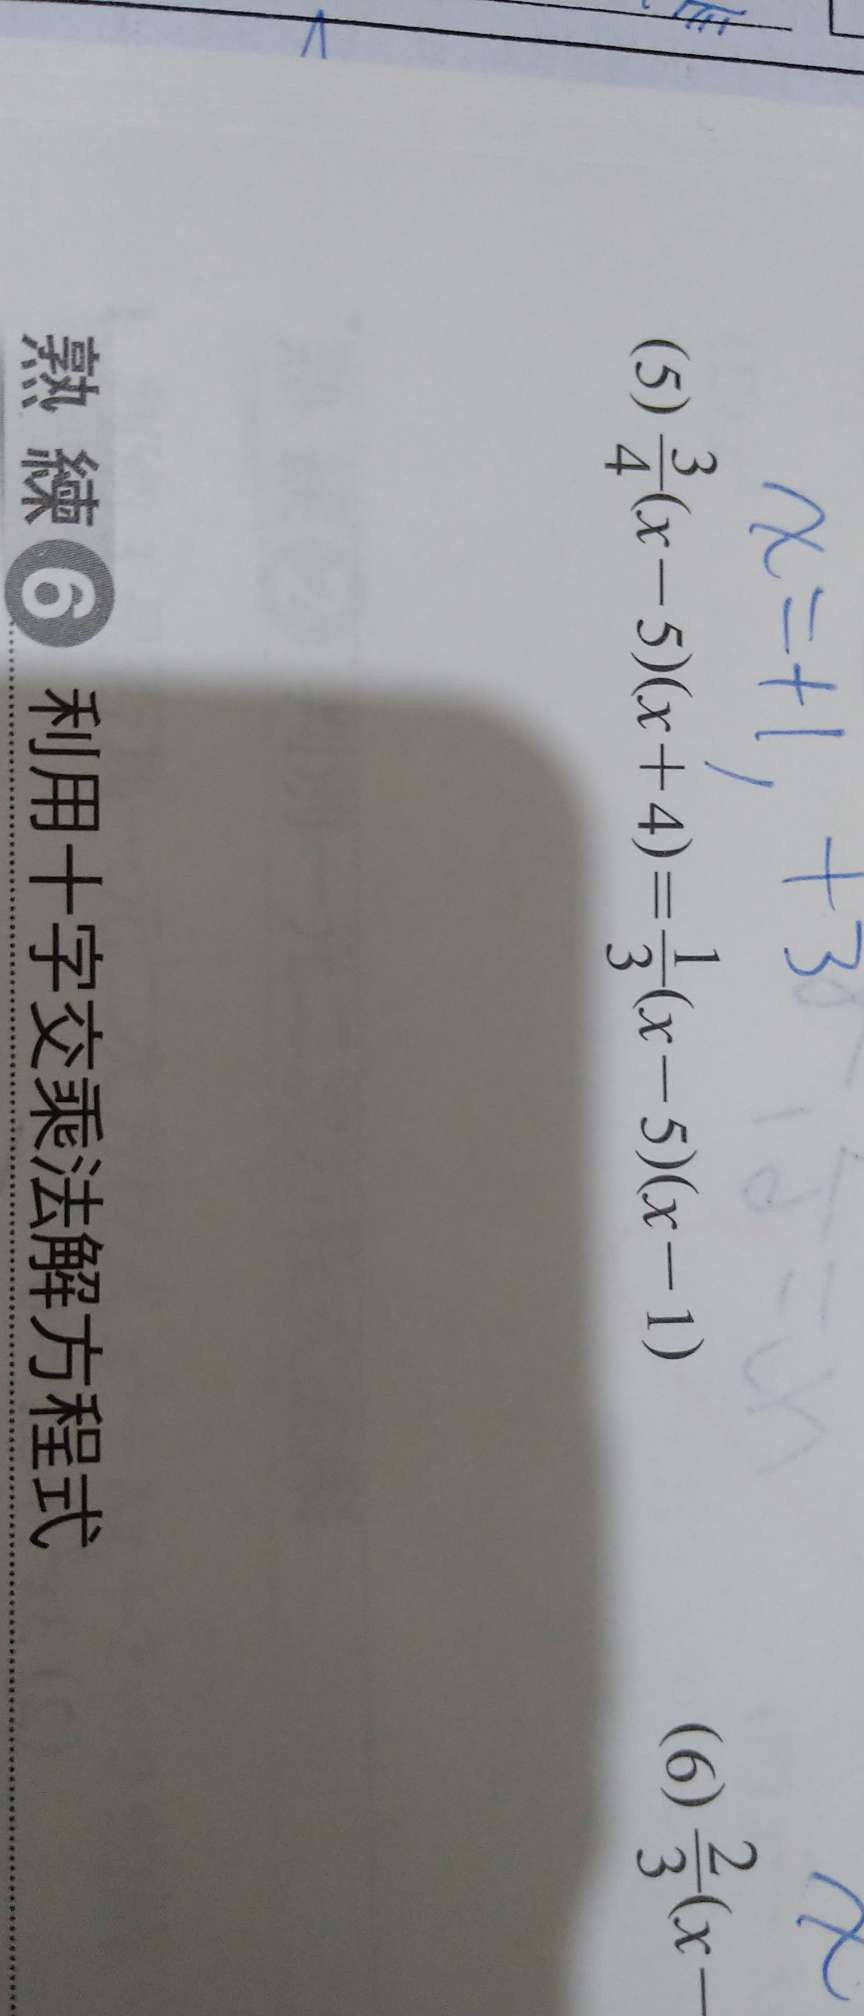 x=+1, +3
(5) \frac{3}{4}(x－5)(x＋4)＝\frac{1}{3}(x－5)(x－1)
(6) \frac{2}{3}(x－
熟 練 6 利用十字交乘法解方程式